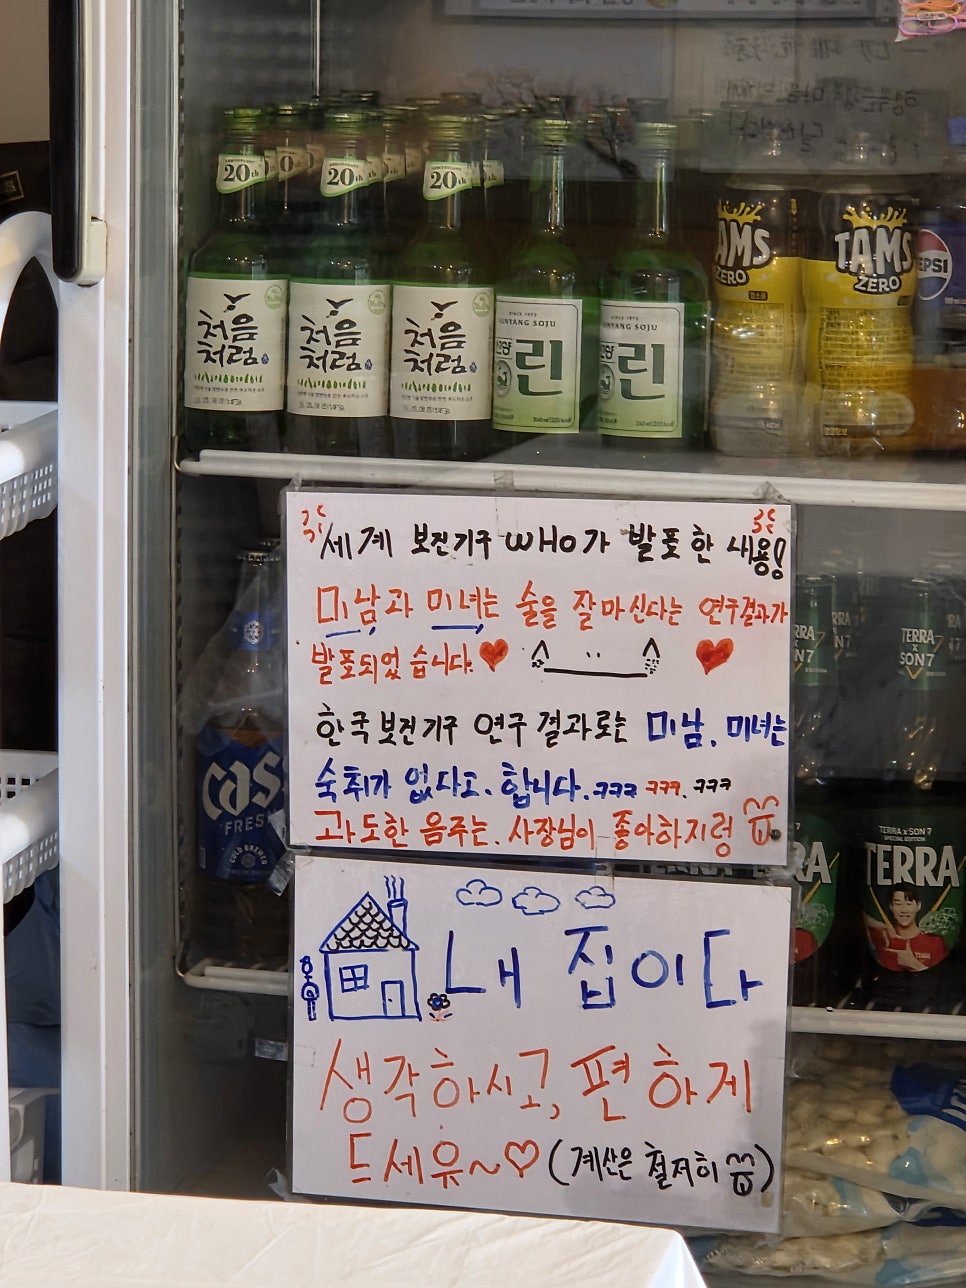 20th
20th
20th
처음
처럼
처음
처럼
처음
처럼
SINCE 1973
SUNYANG SOJU
린
SINCE 1973
SUNYANG SOJU
선양
린
TAMS
ZERO
TAMS
ZERO
PEPSI
세계 보건기구 WHO가 발표한 내용!
미남과 미녀는 술을 잘마신다는 연구결과가
발표되었습니다.
한국보건기구 연구결과로는 미남. 미녀는
숙취가 없다고. 합니다. ㅋㅋㅋ ㅋㅋㅋ. ㅋㅋㅋ
과도한 음주는. 사장님이 좋아하지렁
내 집이다
생각하시고, 편하게
드세유~♡ (계산은 철저히)
cass
FRESH
COLD BREWED
TERRA
x
SON7
TERRA
x
SON7
TERRA x SON 7
SPECIAL EDITION
TERRA
TERRA